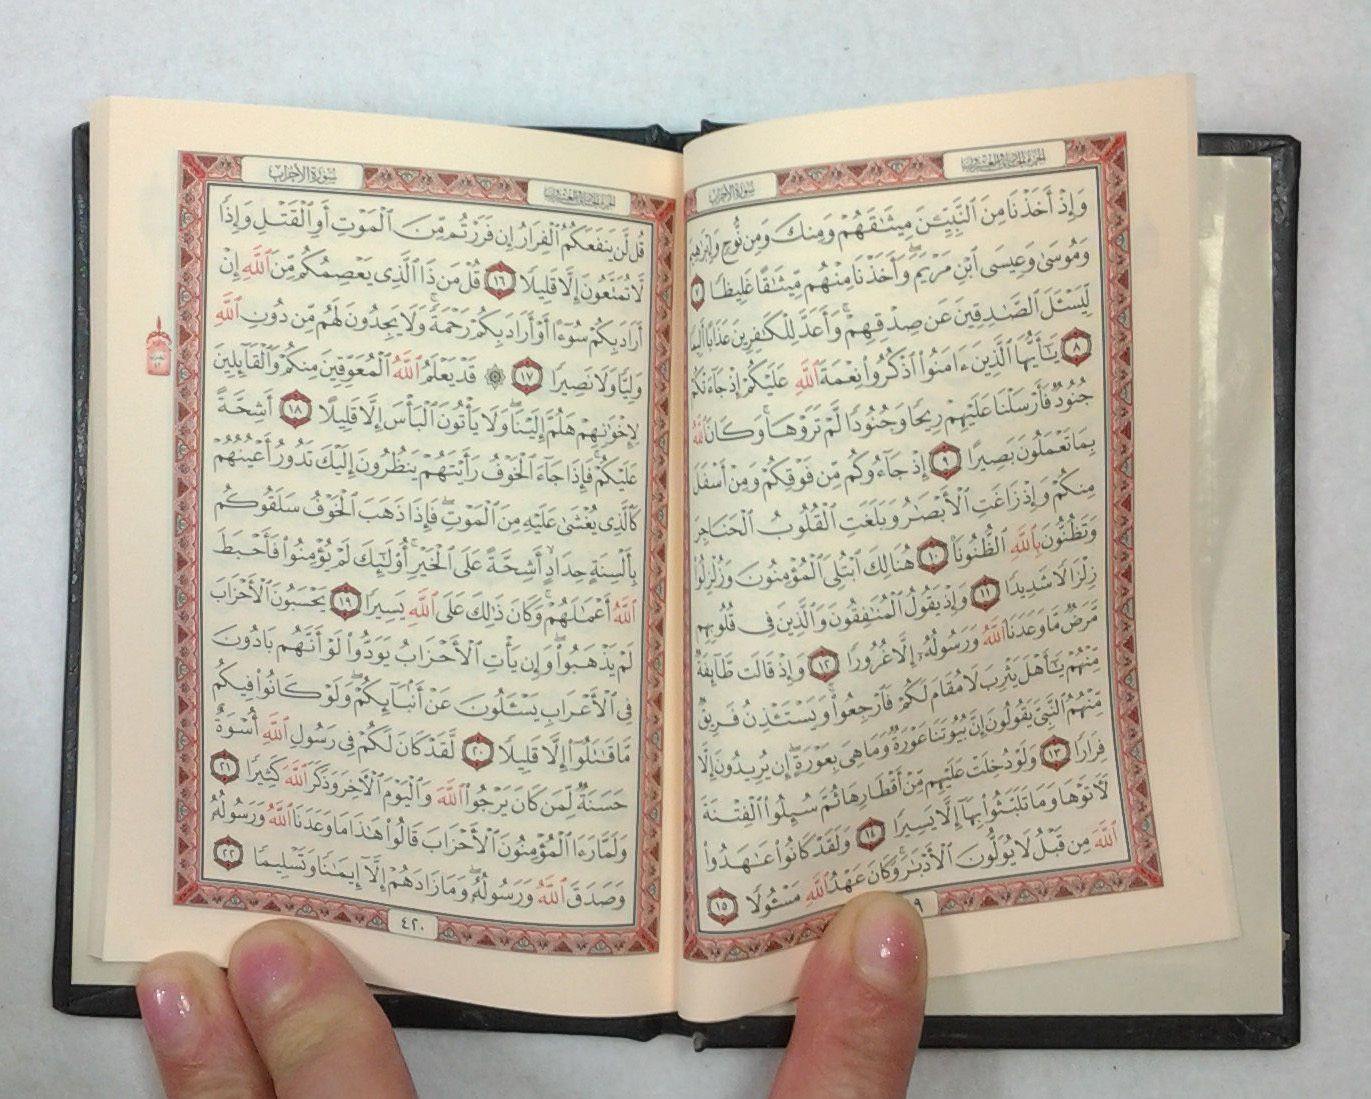 الجزء الحادي والعشرون
سورة الأحزاب
وَإِذْ أَخَذْنَا مِنَ ٱلنَّبِيِّـۧنَ مِيثَـٰقَهُمْ وَمِنكَ وَمِن نُّوحٍ وَإِبْرَٰهِيمَ
وَمُوسَىٰ وَعِيسَى ٱبْنِ مَرْيَمَ ۖ وَأَخَذْنَا مِنْهُم مِّيثَـٰقًا غَلِيظًا ٧
لِّيَسْـَٔلَ ٱلصَّـٰدِقِينَ عَن صِدْقِهِمْ ۚ وَأَعَدَّ لِلْكَـٰفِرِينَ عَذَابًا أَلِيمًا
٨ يَـٰٓأَيُّهَا ٱلَّذِينَ ءَامَنُوا۟ ٱذْكُرُوا۟ نِعْمَةَ ٱللَّهِ عَلَيْكُمْ إِذْ جَآءَتْكُمْ
جُنُودٌ فَأَرْسَلْنَا عَلَيْهِمْ رِيحًا وَجُنُودًا لَّمْ تَرَوْهَا ۚ وَكَانَ ٱللَّهُ
بِمَا تَعْمَلُونَ بَصِيرًا ٩ إِذْ جَآءُوكُم مِّن فَوْقِكُمْ وَمِنْ أَسْفَلَ
مِنكُمْ وَإِذْ زَاغَتِ ٱلْأَبْصَـٰرُ وَبَلَغَتِ ٱلْقُلُوبُ ٱلْحَنَاجِرَ
وَتَظُنُّونَ بِٱللَّهِ ٱلظُّنُونَا۠ ١٠ هُنَالِكَ ٱبْتُلِىَ ٱلْمُؤْمِنُونَ وَزُلْزِلُوا۟
زِلْزَالًا شَدِيدًا ١١ وَإِذْ يَقُولُ ٱلْمُنَـٰفِقُونَ وَٱلَّذِينَ فِى قُلُوبِهِم
مَّرَضٌ مَّا وَعَدَنَا ٱللَّهُ وَرَسُولُهُۥٓ إِلَّا غُرُورًا ١٢ وَإِذْ قَالَت طَّآئِفَةٌ
مِّنْهُمْ يَـٰٓأَهْلَ يَثْرِبَ لَا مُقَامَ لَكُمْ فَٱرْجِعُوا۟ ۚ وَيَسْتَـْٔذِنُ فَرِيقٌ
مِّنْهُمُ ٱلنَّبِىَّ يَقُولُونَ إِنَّ بُيُوتَنَا عَوْرَةٌ وَمَا هِىَ بِعَوْرَةٍ ۖ إِن يُرِيدُونَ إِلَّا
فِرَارًا ١٣ وَلَوْ دُخِلَتْ عَلَيْهِم مِّنْ أَقْطَارِهَا ثُمَّ سُئِلُوا۟ ٱلْفِتْنَةَ
لَـَٔاتَوْهَا وَمَا تَلَبَّثُوا۟ بِهَآ إِلَّا يَسِيرًا ١٤ وَلَقَدْ كَانُوا۟ عَـٰهَدُوا۟
ٱللَّهَ مِن قَبْلُ لَا يُوَلُّونَ ٱلْأَدْبَـٰرَ ۚ وَكَانَ عَهْدُ ٱللَّهِ مَسْـُٔولًا ١٥
٩
الجزء الحادي والعشرون
سورة الأحزاب
قُل لَّن يَنفَعَكُمُ ٱلْفِرَارُ إِن فَرَرْتُم مِّنَ ٱلْمَوْتِ أَوِ ٱلْقَتْلِ وَإِذًا
لَّا تُمَتَّعُونَ إِلَّا قَلِيلًا ١٦ قُلْ مَن ذَا ٱلَّذِى يَعْصِمُكُم مِّنَ ٱللَّهِ إِنْ
أَرَادَ بِكُمْ سُوٓءًا أَوْ أَرَادَ بِكُمْ رَحْمَةً ۚ وَلَا يَجِدُونَ لَهُم مِّن دُونِ ٱللَّهِ
وَلِيًّا وَلَا نَصِيرًا ١٧ ۞ قَدْ يَعْلَمُ ٱللَّهُ ٱلْمُعَوِّقِينَ مِنكُمْ وَٱلْقَآئِلِينَ
لِإِخْوَٰنِهِمْ هَلُمَّ إِلَيْنَا ۖ وَلَا يَأْتُونَ ٱلْبَأْسَ إِلَّا قَلِيلًا ١٨ أَشِحَّةً
عَلَيْكُمْ ۖ فَإِذَا جَآءَ ٱلْخَوْفُ رَأَيْتَهُمْ يَنظُرُونَ إِلَيْكَ تَدُورُ أَعْيُنُهُمْ
كَٱلَّذِى يُغْشَىٰ عَلَيْهِ مِنَ ٱلْمَوْتِ ۖ فَإِذَا ذَهَبَ ٱلْخَوْفُ سَلَقُوكُم
بِأَلْسِنَةٍ حِدَادٍ أَشِحَّةً عَلَى ٱلْخَيْرِ ۚ أُو۟لَـٰٓئِكَ لَمْ يُؤْمِنُوا۟ فَأَحْبَطَ
ٱللَّهُ أَعْمَـٰلَهُمْ ۚ وَكَانَ ذَٰلِكَ عَلَى ٱللَّهِ يَسِيرًا ١٩ يَحْسَبُونَ ٱلْأَحْزَابَ
لَمْ يَذْهَبُوا۟ ۖ وَإِن يَأْتِ ٱلْأَحْزَابُ يَوَدُّوا۟ لَوْ أَنَّهُم بَادُونَ
فِى ٱلْأَعْرَابِ يَسْـَٔلُونَ عَنْ أَنۢبَآئِكُمْ ۖ وَلَوْ كَانُوا۟ فِيكُم
مَّا قَـٰتَلُوٓا۟ إِلَّا قَلِيلًا ٢٠ لَّقَدْ كَانَ لَكُمْ فِى رَسُولِ ٱللَّهِ أُسْوَةٌ
حَسَنَةٌ لِّمَن كَانَ يَرْجُوا۟ ٱللَّهَ وَٱلْيَوْمَ ٱلْـَٔاخِرَ وَذَكَرَ ٱللَّهَ كَثِيرًا ٢١
وَلَمَّا رَءَا ٱلْمُؤْمِنُونَ ٱلْأَحْزَابَ قَالُوا۟ هَـٰذَا مَا وَعَدَنَا ٱللَّهُ وَرَسُولُهُۥ
وَصَدَقَ ٱللَّهُ وَرَسُولُهُۥ ۚ وَمَا زَادَهُمْ إِلَّآ إِيمَـٰنًا وَتَسْلِيمًا ٢٢
٤٢٠